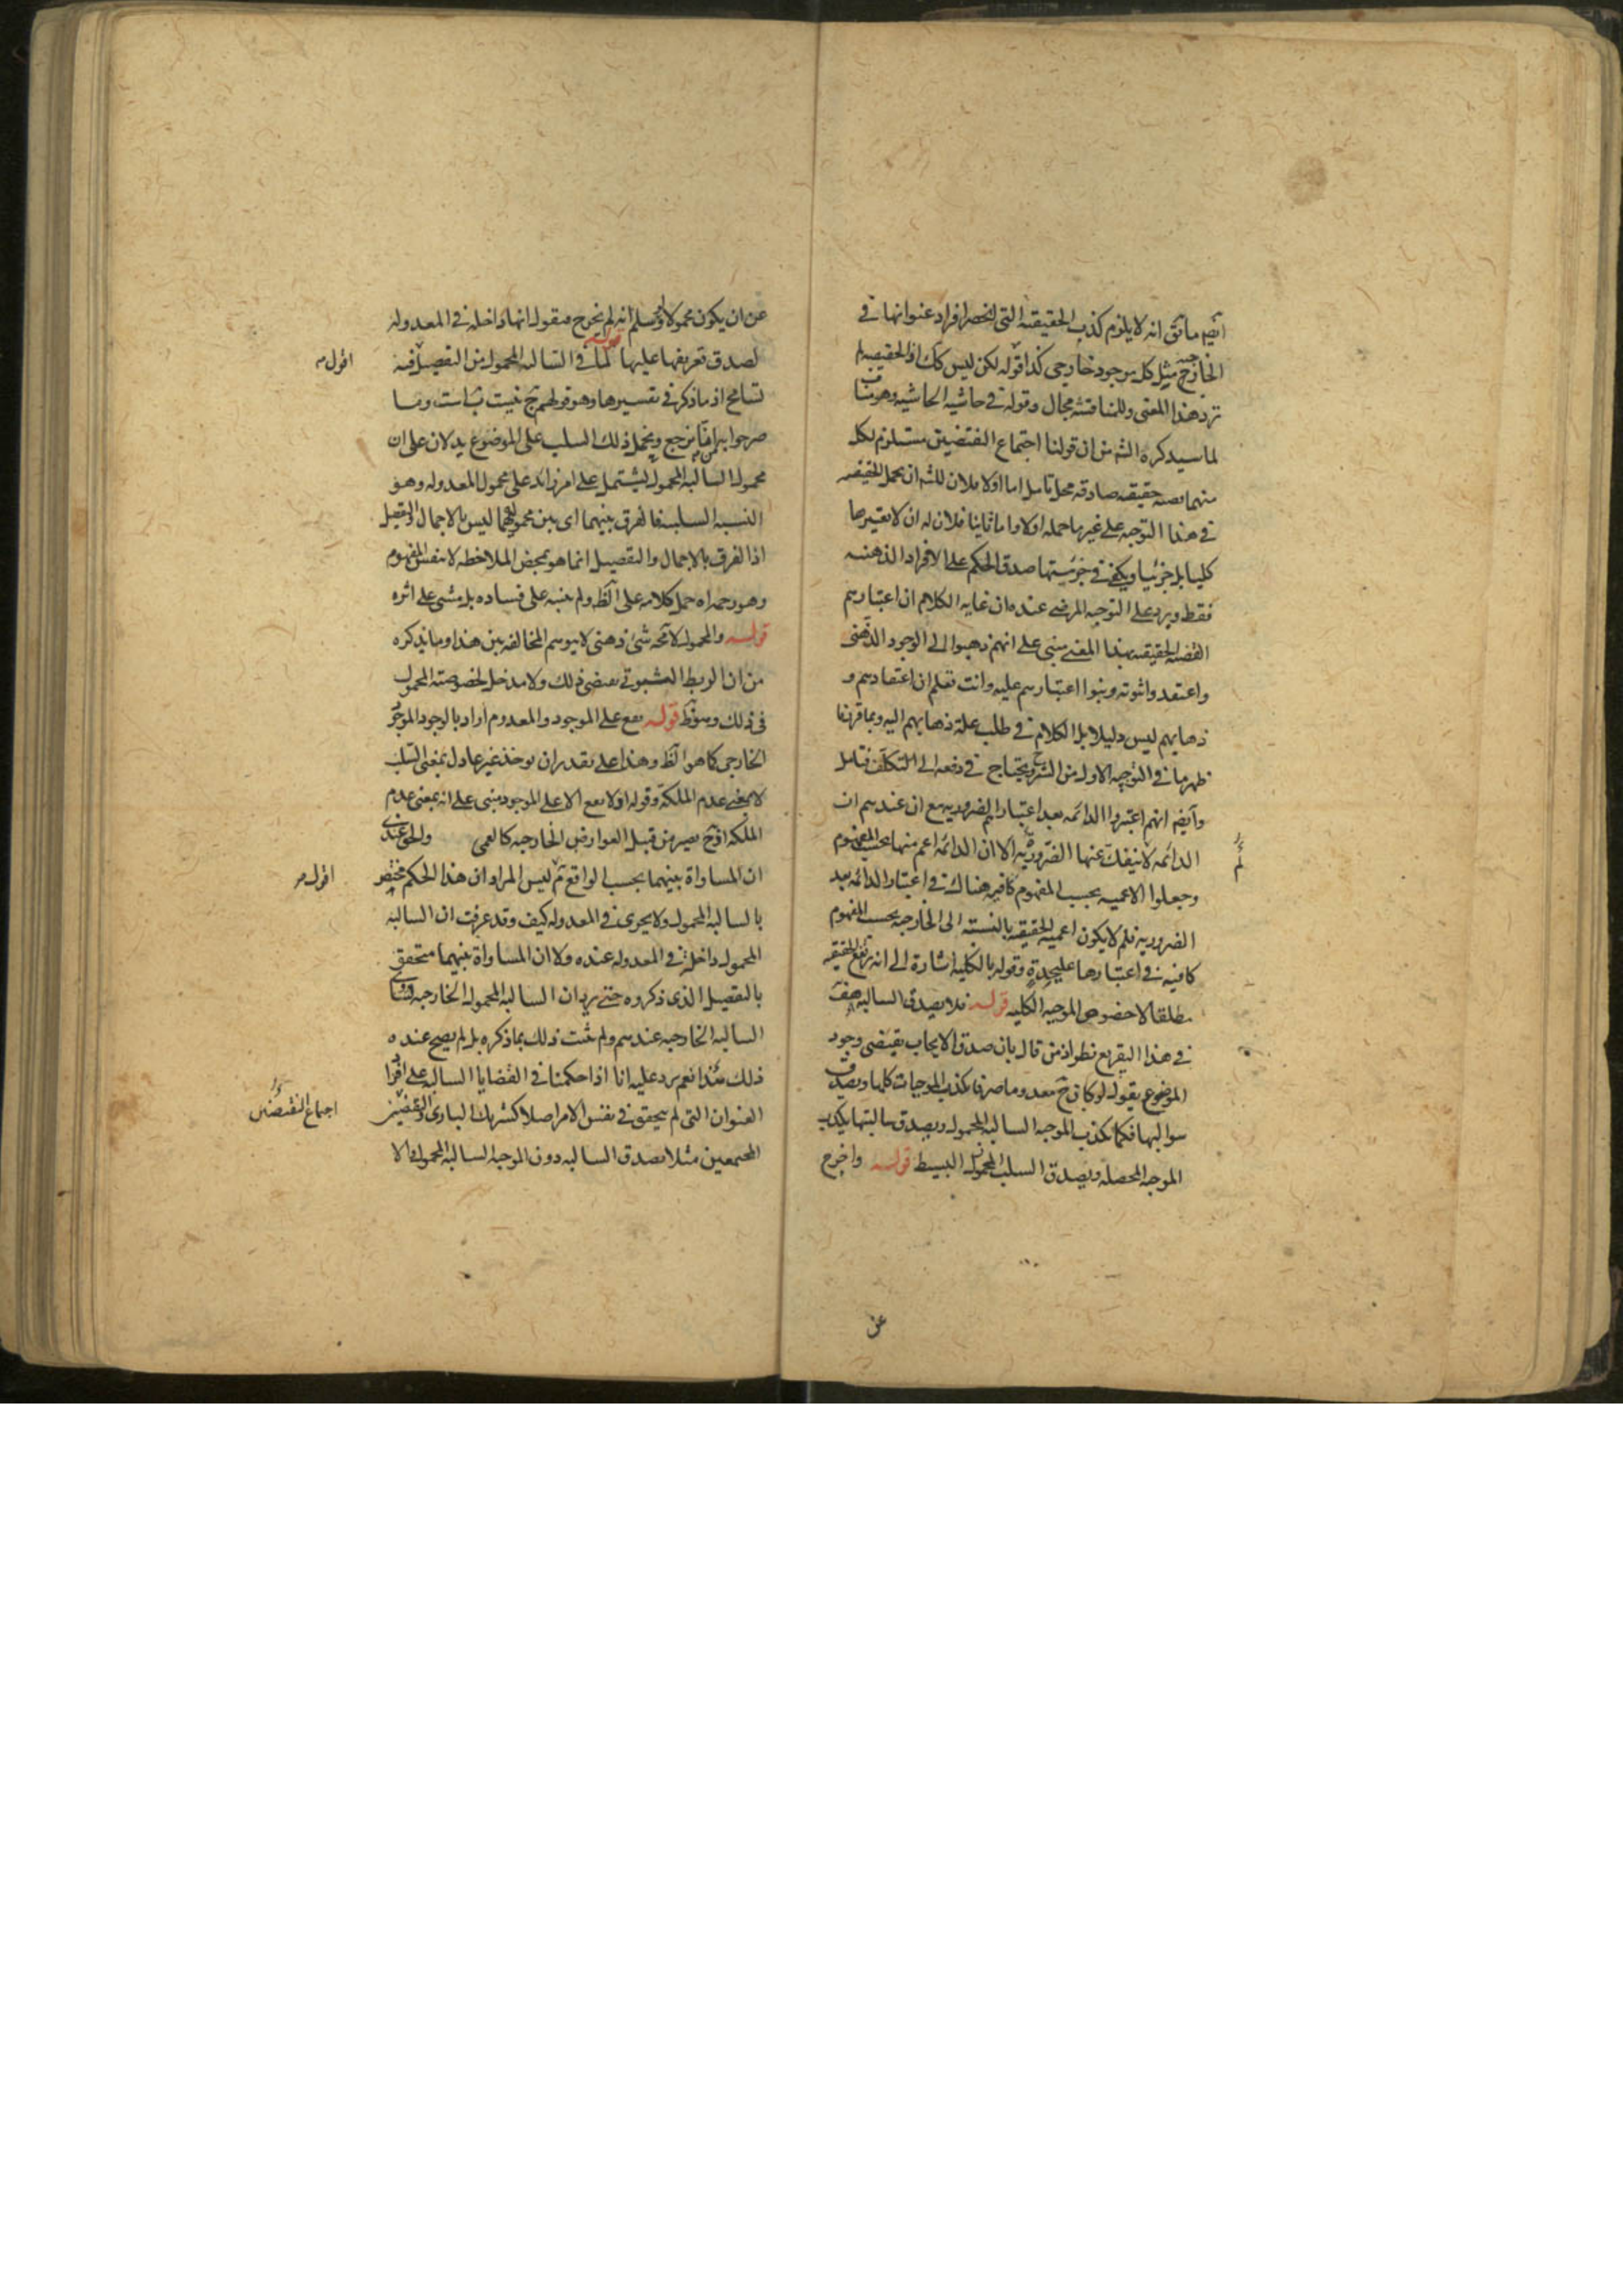 ايضا ما قيل انه لا يلزم كذب الحقيقية التى انحصر افراد عنوانها فى
الخارج مثل كل موجود خارجى كذا قوله لكن ليس كك اذ الحقيقية لم
ترد هذا المعنى وللمناقشة مجال وقوله فى حاشية الحاشية وهو مناف
لما سيذكره الشه من ان قولنا اجتماع النقيضين مستلزم لكل
منهما بصه حقيقية صادقة محل تامل اما اولا فلان للشه ان يحمل الحقيقية
فى هذا التوجيه على غير ما حمله اولا واما ثانيا فلان له ان لا يعتبرها
كليا بل جزئيا ويكفى فى جزئيتها صدق الحكم على الافراد الذهنية
فقط ويرد على التوجيه المرضى عنده ان غاية الكلام ان اعتبارهم
القضية الحقيقية بهذا المعنى مبنى على انهم ذهبوا الى الوجود الذهنى
واعتقدوا ثبوته وبنوا اعتبارهم عليه وانت تعلم ان اعتقادهم و
ذهابهم ليس دليلا بل الكلام فى طلب علة ذهابهم اليه وبما قررنا
ظهر ما فى التوجيه الاول من الشرح ويحتاج فى دفعه الى التكلف فتامل
وايضا انهم اعتبروا الدائمة بعد اعتبارهم الضرورية مع ان عندهم ان
الدائمة لا ينفك عنها الضرورية الا ان الدائمة اعم منها بحسب المفهوم
وجعلوا الاعمية بحسب المفهوم كافية هناك فى اعتبار الدائمة بعد
الضرورية فلم لا يكون اعمية الحقيقية بالنسبة الى الخارجية بحسب المفهوم
كافية فى اعتبارها عليحدة وقوله بالكلية اشارة الى انه يرتفع الحقيقية
مطلقا لا خصوص الموجبة الكلية قوله فلا يصدق السالبة
فى هذا التفريع نظر اذ من قال بان صدق الايجاب يقتضى وجود
الموضوع يقول لو كان ج معدوما صرفا يكذب الموجبات كلها ويصدق
سوالبها فكما يكذب الموجبة السالبة المحمول ويصدق سالبتها يكذب
الموجبة المحصلة ويصدق السلب المحمول البسيط قوله واخرج
عن
عن ان يكون محمولا ولو سلم انه لم يخرج فنقول انها داخلة فى المعدولة
لصدق تعريفها عليها قوله لما فى السالبة المحمول من التفصيل فيه
اقول
تسامح اذ ما ذكر فى تفسيرها وهو قولهم ج نيست ب است وما
صرحوا به من انا نرجع ونحمل ذلك السلب على الموضوع يدلان على ان
محمول السالبة المحمول يشتمل على امر زائد على محمول المعدولة وهو
النسبة السلبية فالفرق بينهما اى بين محموليهما ليس بالاجمال والتفصيل
اذ الفرق بالاجمال والتفصيل انما هو بمحض الملاحظة لا بنفس المفهوم
وهو رحمه الله حمل كلامه على الظ ولم ينبه على فساده بل مشى على اثره
قوله والمحمول لا محه شئ ذهنى لا يوهم المخالفة بين هذا وما يذكره
من ان الربط الثبوتى يقتضى ذلك ولا مدخل لخصوصية المحمول
فى ذلك وهو ظ قوله يقع على الموجود والمعدوم اراد بالوجود الموجود
الخارجى كما هو الظ وهذا على تقدير ان يوخذ غير عادل بمعنى السلب
لا بمعنى عدم الملكة وقوله او لا يقع الا على الموجود مبنى على انه بمعنى عدم
الملكة اذ ح يصير من قبيل العوارض الخارجية كالعمى والحق عندى
ان المساواة بينهما بحسب الواقع ثم ليس المراد ان هذا الحكم مختص
اقول
بالسالبة المحمول ولا يجرى فى المعدولة كيف وقد عرفت ان السالبة
المحمول داخلة فى المعدولة عنده ولا ان المساواة بينهما متحقق
بالتفصيل الذى ذكروه حتى يرد ان السالبة المحمول الخارجية تساوى
السالبة الخارجية عندهم ولم يثبت ذلك بما ذكره بل لم يصح عنده
ذلك هذا نعم يرد عليه انا اذا حكمنا فى القضايا السالبة على افراد
العنوان التى لم يتحقق فى نفس الامر اصلا كشريك البارى والنقيضين
اجتماع النقيضين
المجتمعين مثلا يصدق السالبة دون الموجبة السالبة المحمول والا